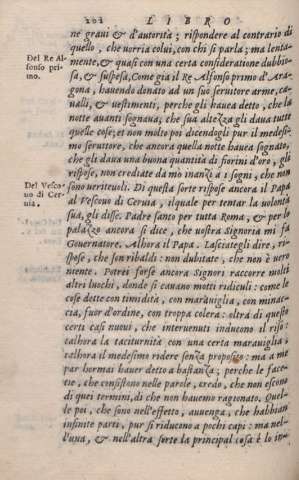 202 LIBRO
ne graui & d'autorità; rispondere al contrario di
quello, che uorria colui, con chi si parla; ma lenta-
mente, & quasi con una certa consideratione dubbio-
Del Re Al-
fonso pri-
mo.
sa, & suspesa, Come già il Re Alfonso primo d'Ara-
gona, hauendo donato ad un suo seruitore arme, ca-
ualli, & uestimenti, perche gli hauea detto, che la
notte auanti sognaua, che sua altezza gli daua tutte
quelle cose; et non molto poi dicendogli pur il medesi-
mo seruitore, che ancora quella notte hauea sognato,
che gli daua una buona quantità di fiorini d'oro, gli
rispose, non crediate da mo inanzi a i sogni, che non
Del Vesco-
uo di Cer-
uia.
sono ueriteuoli. Di questa sorte rispose ancora il Papa
al Vescouo di Ceruia, ilquale per tentar la uolontà
sua, gli disse. Padre santo per tutta Roma, & per lo
palazzo ancora si dice, che uostra Signoria mi fa
Gouernatore. Alhora il Papa. Lasciategli dire, ri-
spose, che son ribaldi: non dubitate, che non è uero
niente. Potrei forse ancora Signori raccorre molti
altri luochi, donde si cauano motti ridiculi: come le
cose dette con timidità, con marauiglia, con minac-
cia, fuor d'ordine, con troppa colera: oltra di questo
certi casi nuoui, che interuenuti inducono il riso:
talhora la taciturnità con una certa marauiglia;
talhora il medesimo ridere senza proposito: ma a me
par hormai hauer detto a bastanza; perche le face-
tie, che consistono nelle parole, credo, che non escono
di quei termini, di che non hauemo ragionato. Quel-
le poi, che sono nell'effetto, auuenga, che habbian
infinite parti, pur si riducono a pochi capi: ma nel-
l'una, & nell'altra sorte la principal cosa è lo in-